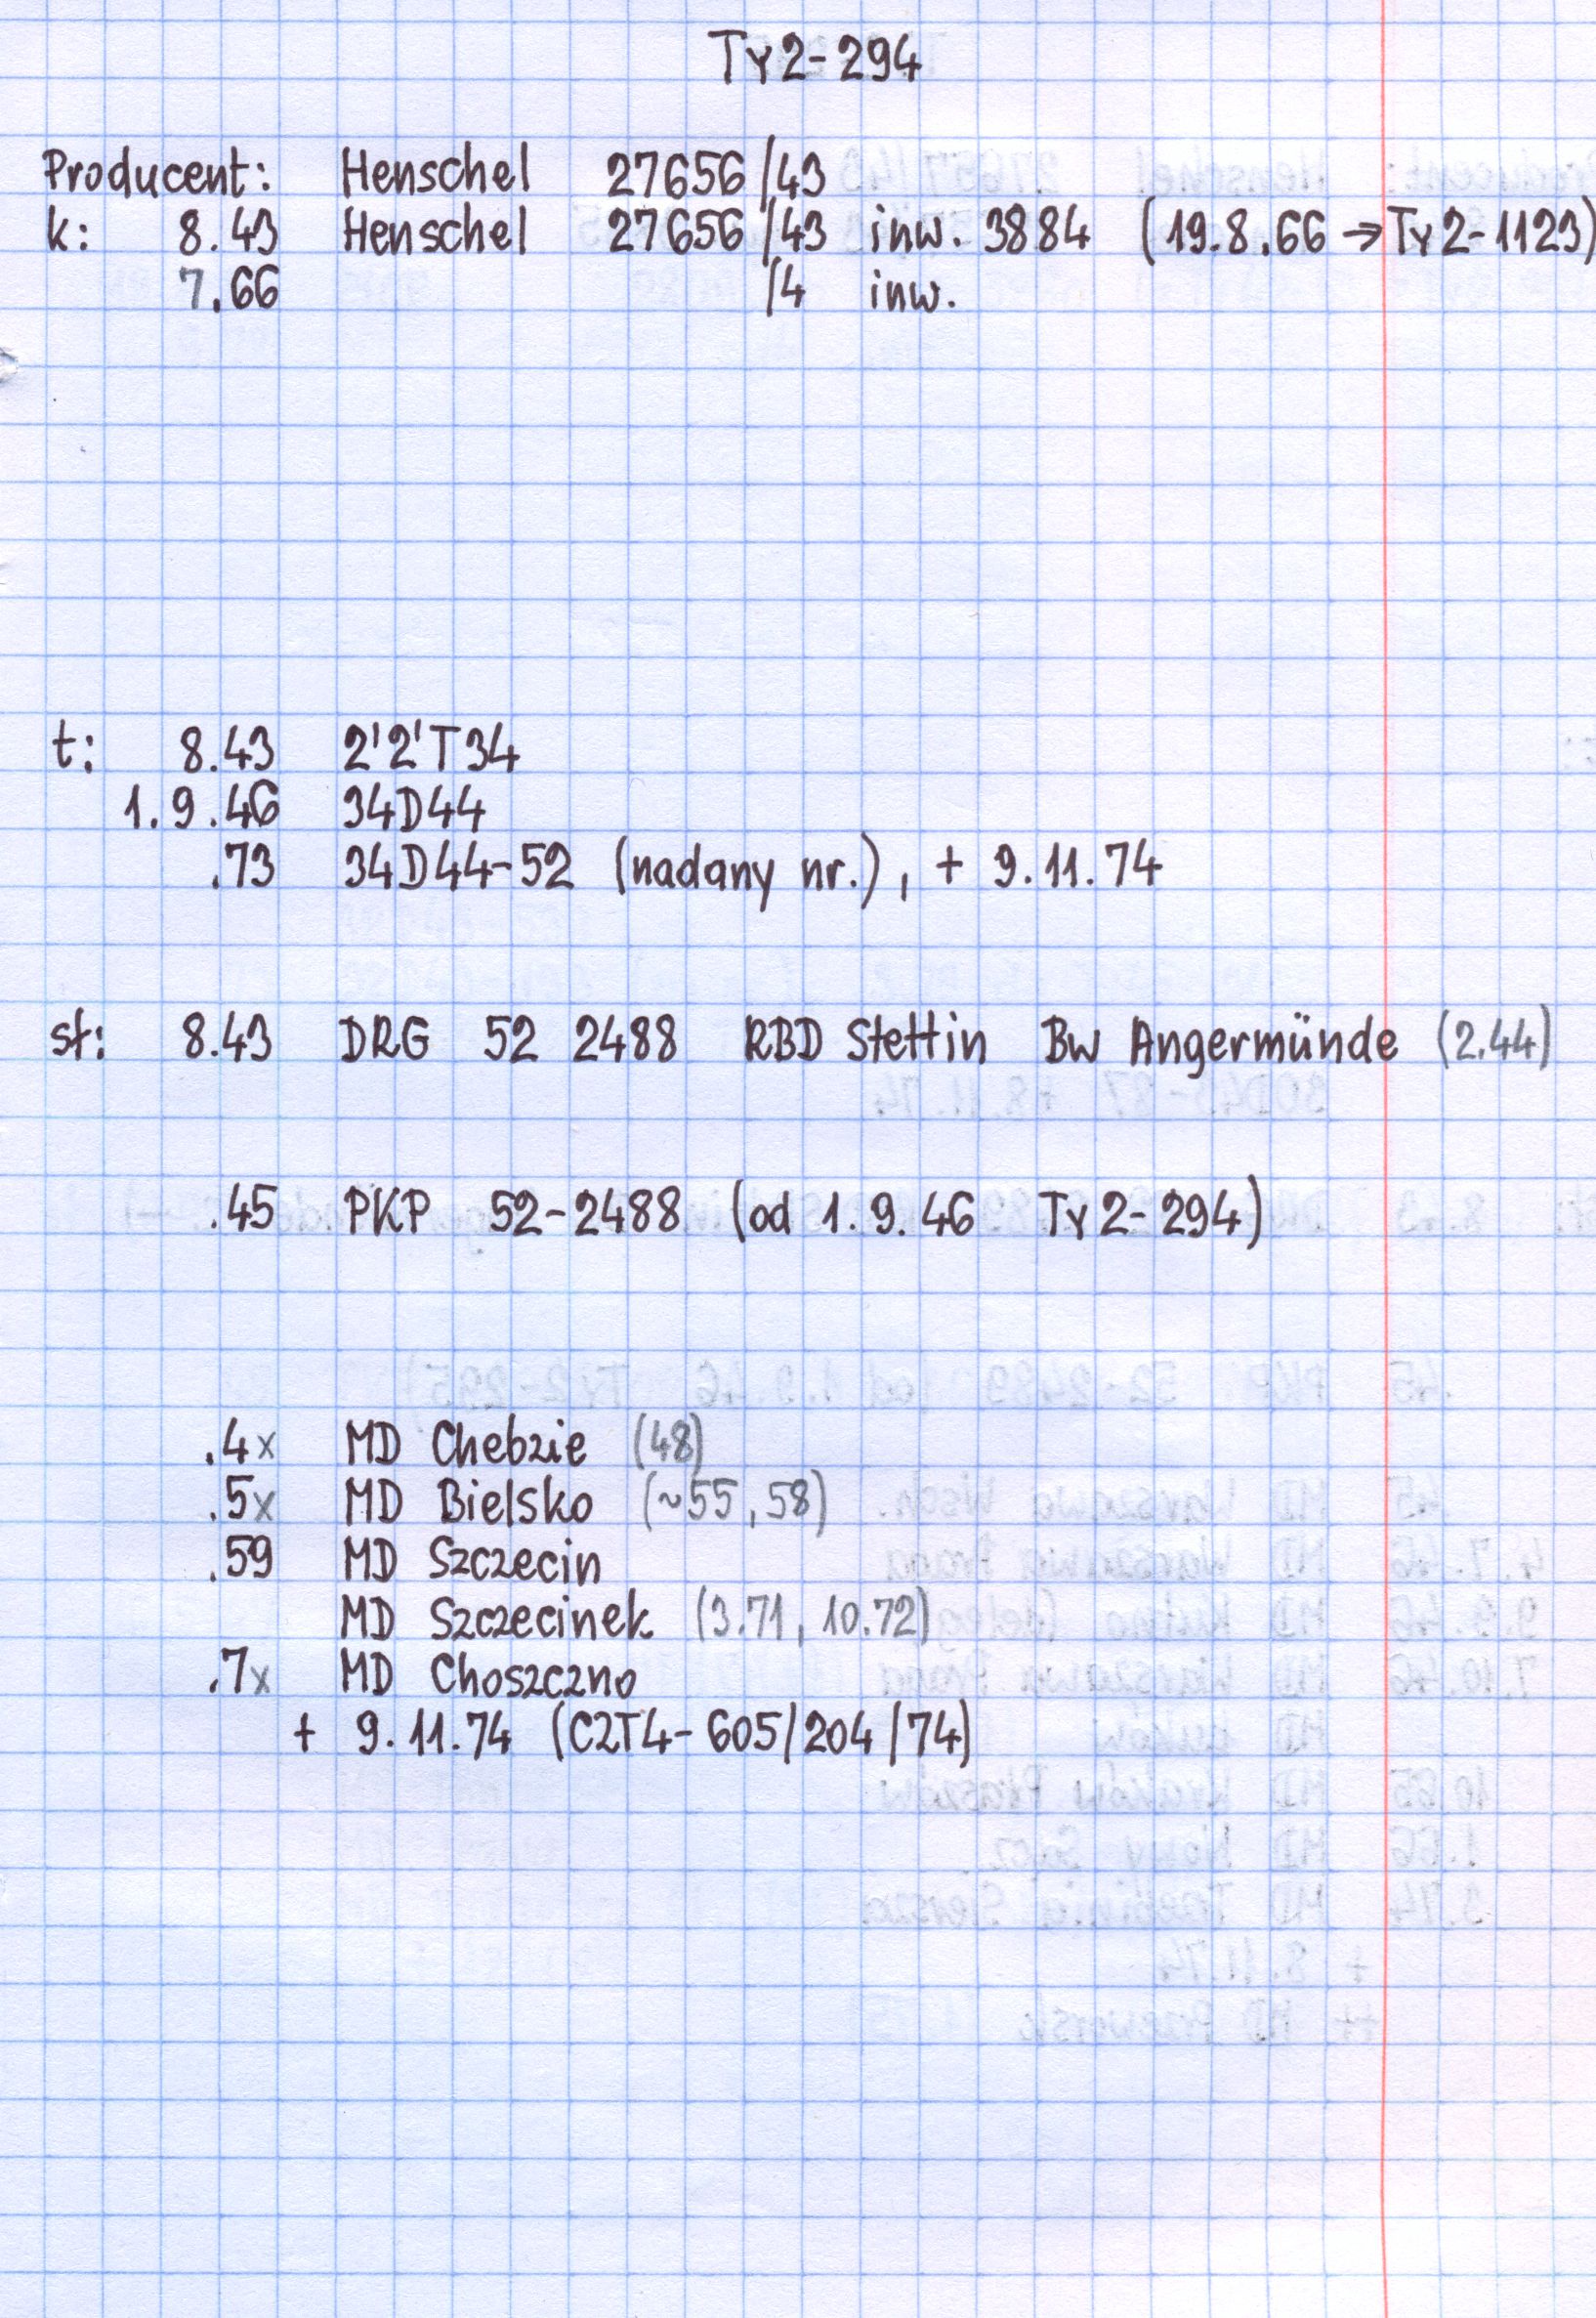 Ty2-294
Producent: Henschel 27656/43
k: 8.43 Henschel 27656/43 inw. 3884 (19.8.66 → Ty2-1123)
7.66 /4 inw.
t: 8.43 2'2'T34
1.9.46 34D44
.73 34D44-52 (nadany nr.), + 9.11.74
st: 8.43 DRG 52 2488 RBD Stettin Bw Angermünde (2.44)
.45 PKP 52-2488 (od 1.9.46 Ty2-294)
.4x MD Chebzie (48)
.5x MD Bielsko (~55, 58)
.59 MD Szczecin
MD Szczecinek (3.71, 10.72)
.7x MD Choszczno
+ 9.11.74 (C2T4-605/204/74)